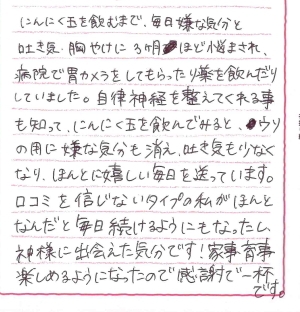 にんにく玉を飲むまで、毎日嫌な気分と
吐き気・胸やけに3ヶ月ほど悩まされ、
病院で胃カメラをしてもらったり薬を飲んだり
していました。自律神経を整えてくれる事
も知って、にんにく玉を飲んでみると、ウソ
の用に嫌な気分も消え、吐き気も少なく
なり、ほんとに嬉しい毎日を送っています。
口コミを信じないタイプの私がほんと
なんだと毎日続けるようにもなったし、
神様に出会えた気分です！家事育事
楽しめるようになったので感謝で一杯
です。